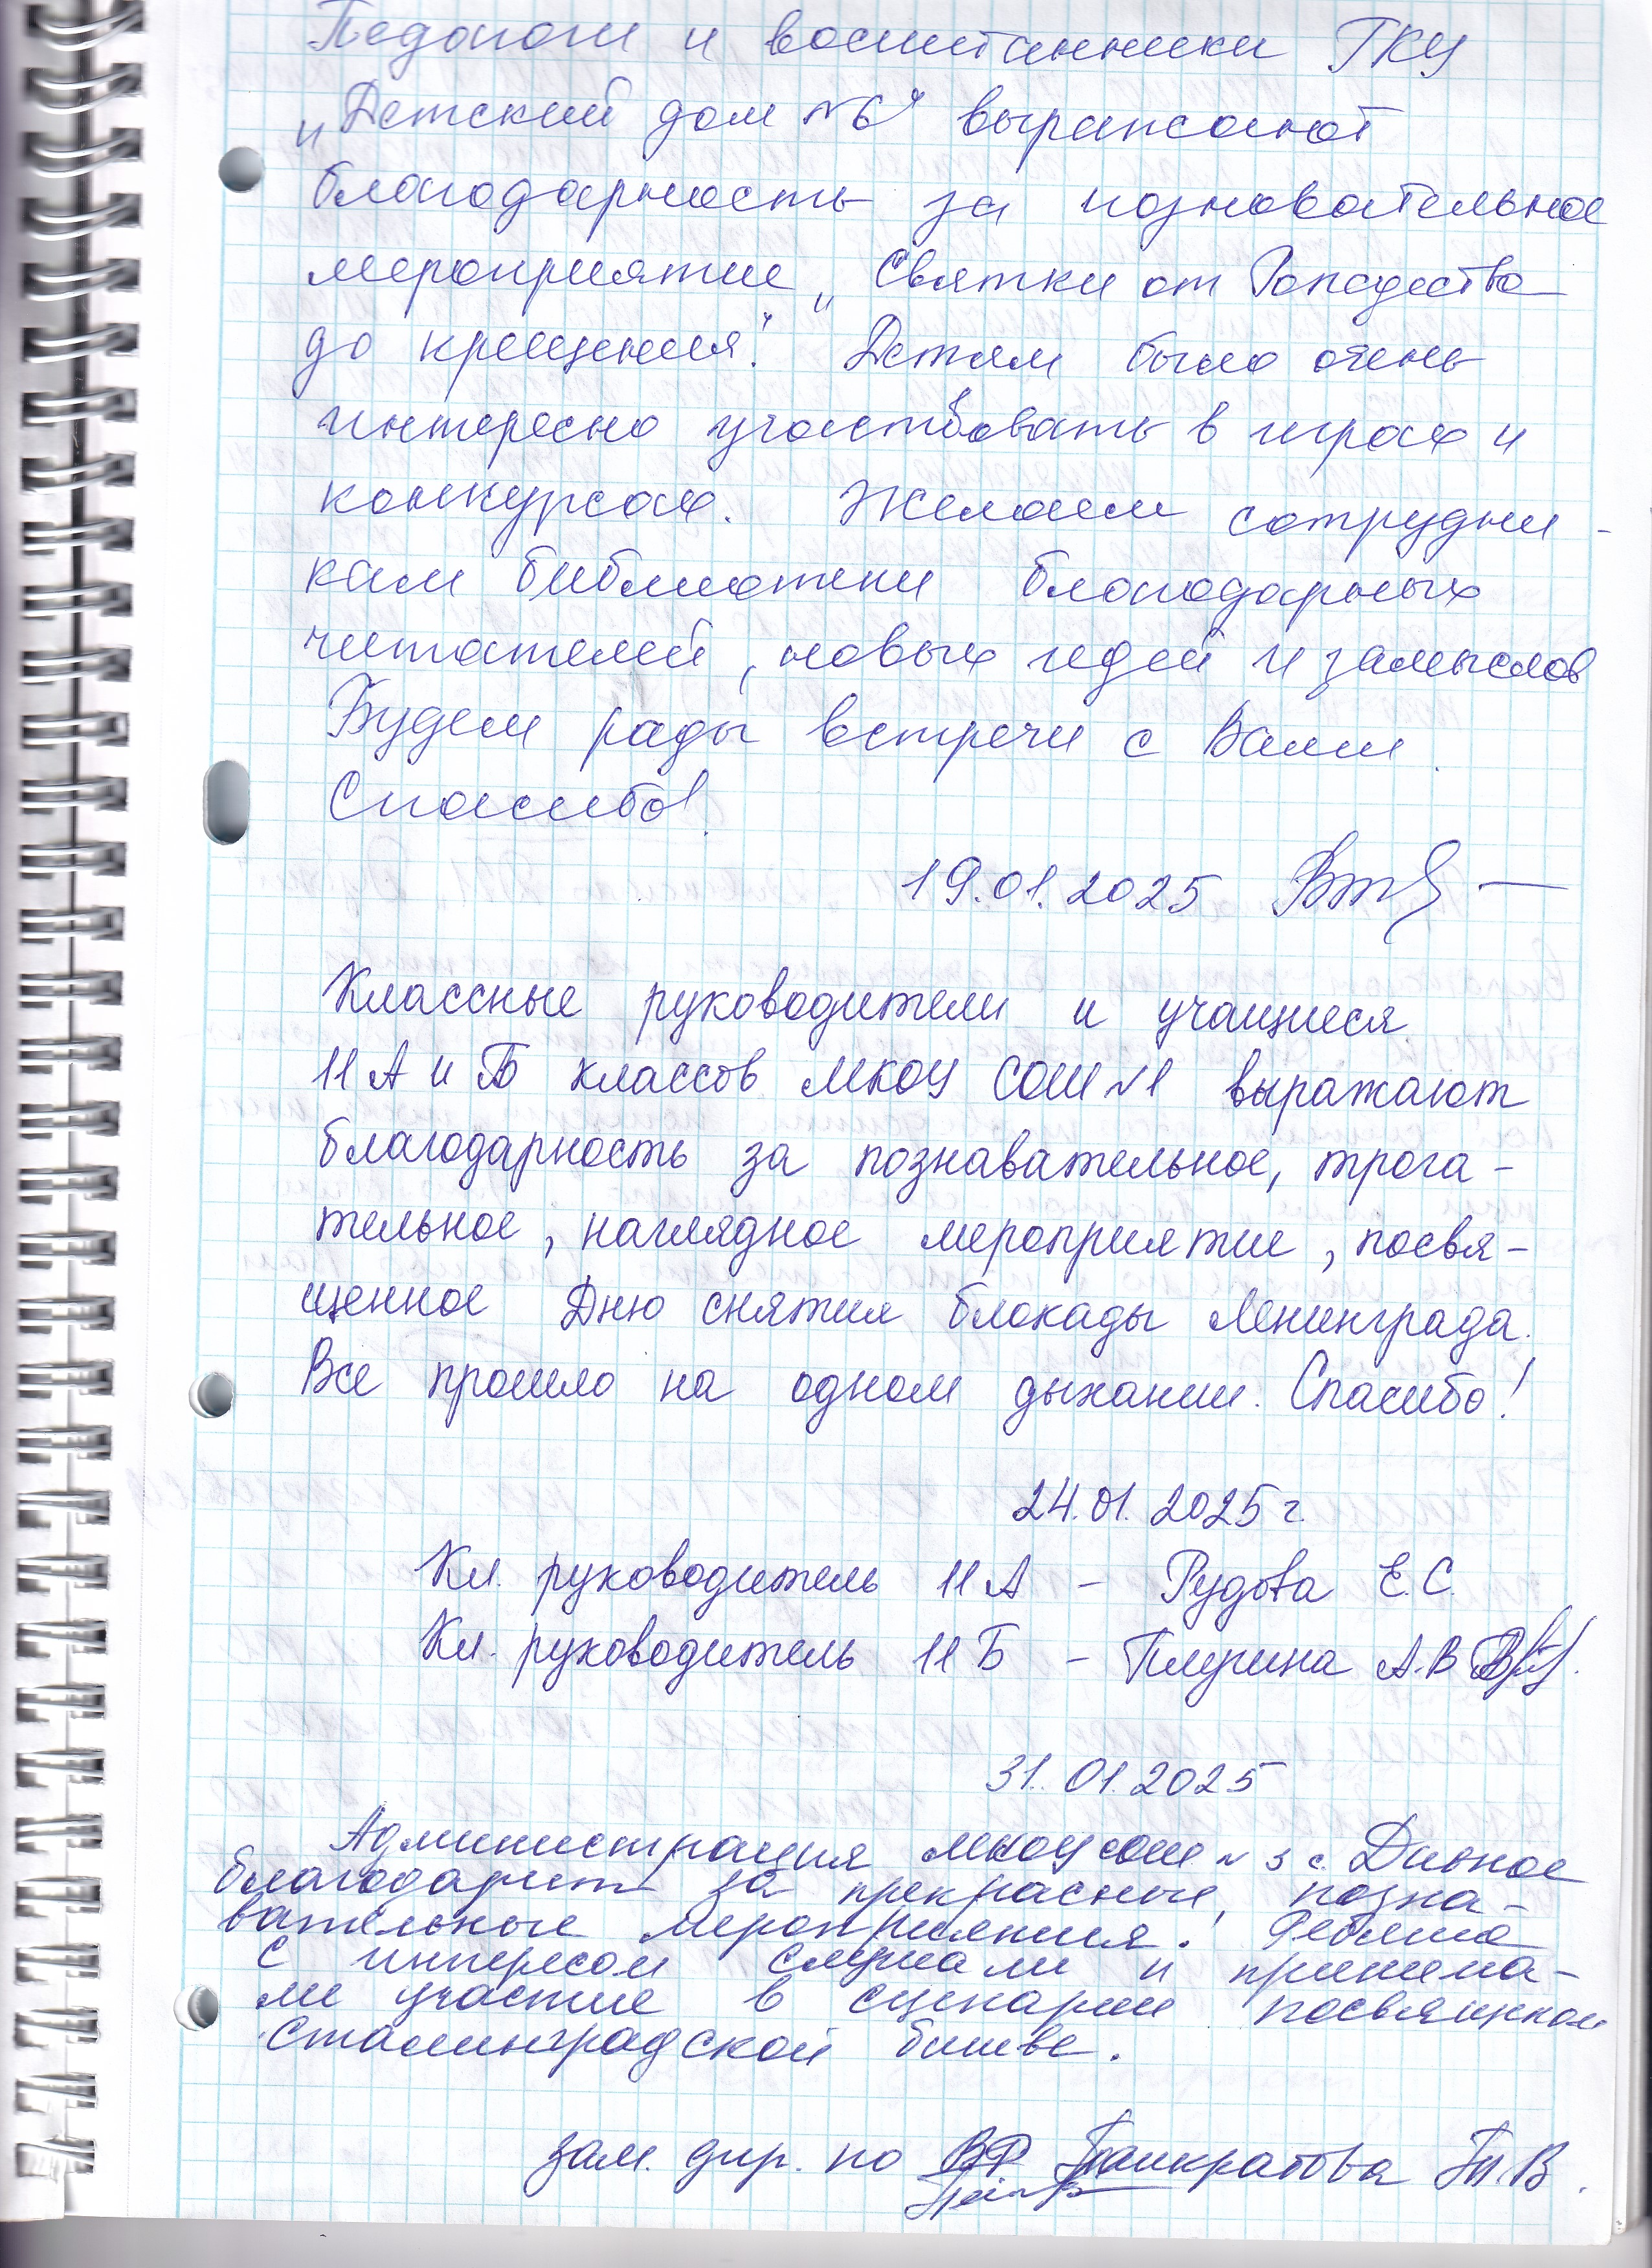 Педагоги и воспитанники ГКУ
„Детский дом №6“ выражают
благодарность за познавательное
мероприятие „Святки от Рождества
до крещения“. Детям было очень
интересно участвовать в играх и
конкурсах. Желаем сотрудни-
кам библиотеки благодарных
читателей, новых идей и замыслов
Будем рады встречи с Вами.
Спасибо!
19.01.2025
Классные руководители и учащиеся
11 А и Б классов МКОУ СОШ №1 выражают
благодарность за познавательное, трога-
тельное, наглядное мероприятие, посвя-
щенное Дню снятия блокады Ленинграда.
Все прошло на одном дыхании. Спасибо!
24.01.2025 г.
Кл. руководитель 11 А – Рудова Е.С.
Кл. руководитель 11 Б – А.В
31.01.2025
Администрация МКОУ СОШ № 3 с. Дивное
благодарит за прекрасные, позна-
вательные мероприятия. Ребята
с интересом слушали и принима-
ли участие в сценарии посвященном
Сталинградской битве.
зам. дир. по ВР Панкратова Т.В.